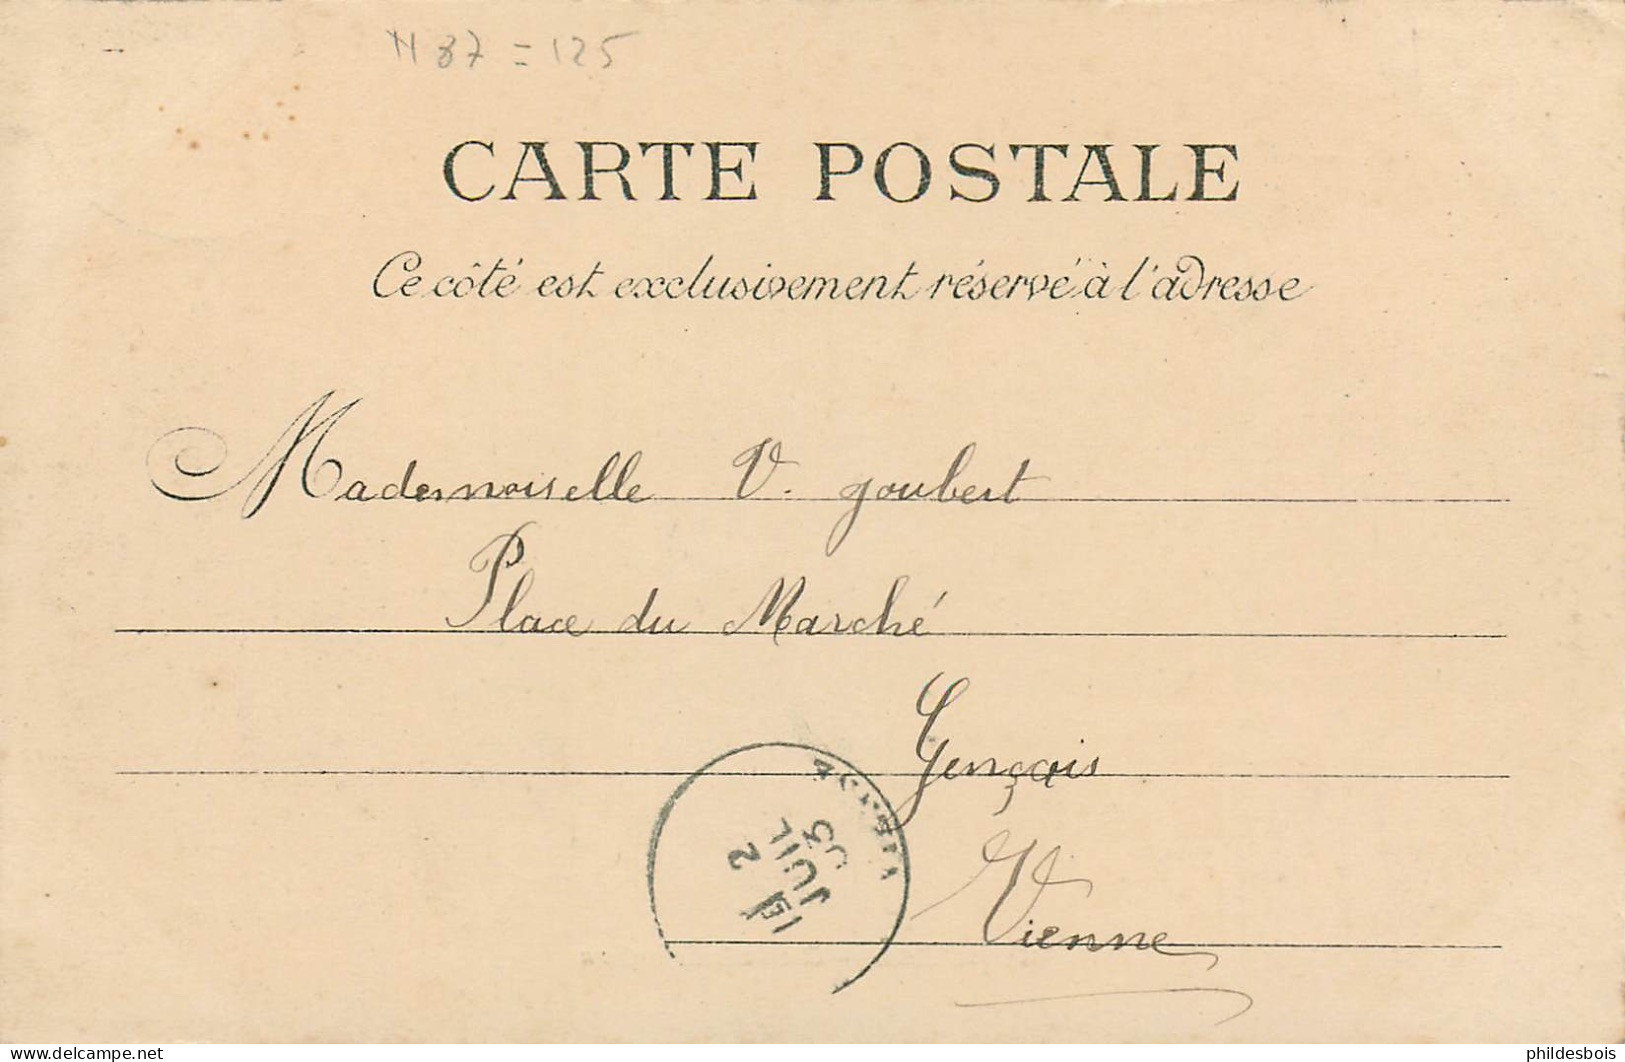 N 87 = 125
CARTE POSTALE
Ce côté est exclusivement réservé à l'adresse
Mademoiselle V. Joubert
Place du Marché
Gençais
Vienne
2
JUIL
03
Je suis sur delcampe.net
phildesbois